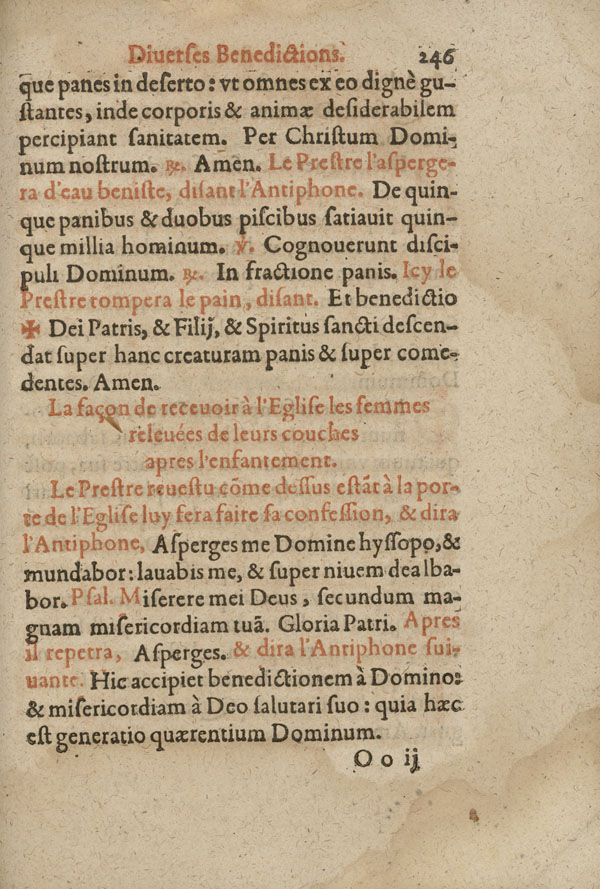 Diuerses Benedictions. 246
que panes in deſerto: vt omnes ex eo dignè gu-
ſtantes, inde corporis & animæ deſiderabilem
percipiant ſanitatem. Per Chriſtum Domi-
num noſtrum. ℟. Amen. Le Preſtre l'aſperge-
ra d'eau beniſte, diſant l'Antiphone. De quin-
que panibus & duobus piſcibus ſatiauit quin-
que millia hominum. ℣. Cognouerunt diſci-
puli Dominum. ℟. In fractione panis. Icy le
Preſtre rompera le pain, diſant. Et benedictio
✠ Dei Patris, & Filij, & Spiritus ſancti deſcen-
dat ſuper hanc creaturam panis & ſuper come-
dentes. Amen.
La façon de receuoir à l'Egliſe les femmes
releuées de leurs couches
apres l'enfantement.
Le Preſtre reueſtu cõme deſſus eſtãt à la por-
te de l'Egliſe luy fera faire ſa confeſſion, & dira
l'Antiphone, Aſperges me Domine hyſſopo, &
mundabor: lauabis me, & ſuper niuem dealba-
bor. Pſal. Miſerere mei Deus, ſecundum ma-
gnam miſericordiam tuã. Gloria Patri. Apres
il repetra, Aſperges. & dira l'Antiphone ſui-
uante. Hic accipiet benedictionem à Domino:
& miſericordiam à Deo ſalutari ſuo: quia hæc
eſt generatio quærentium Dominum.
O o ij